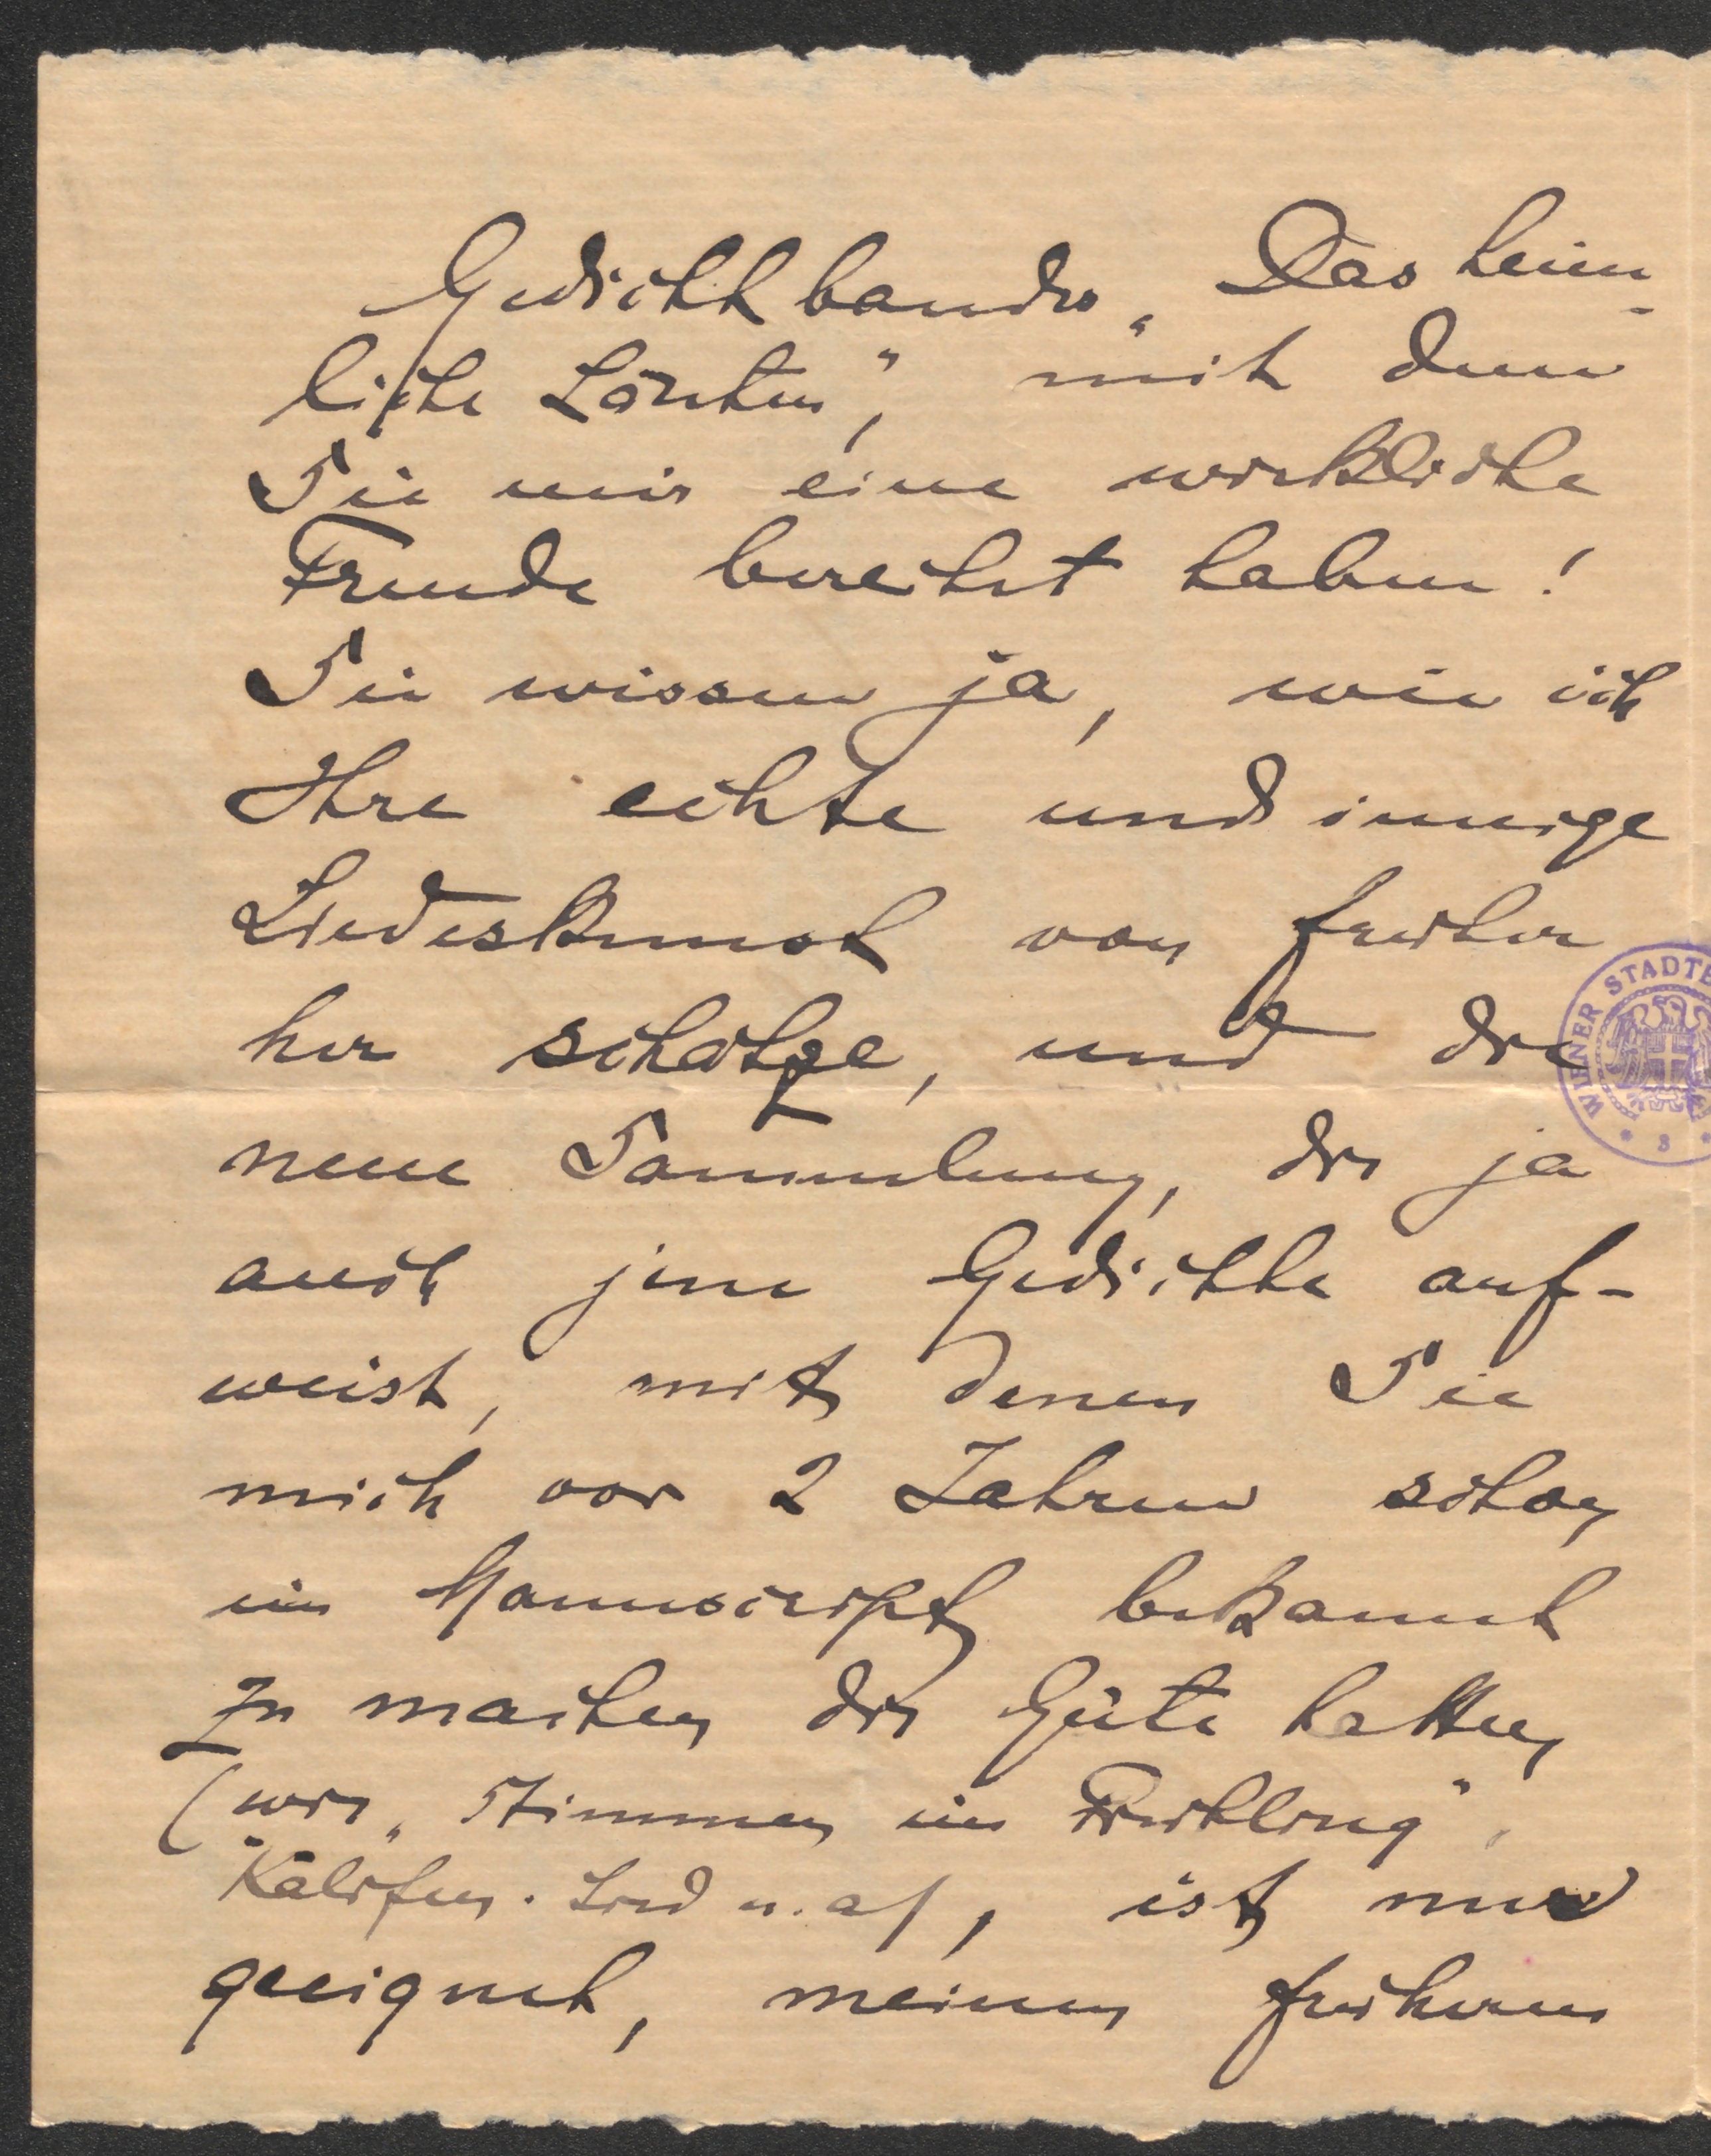 Gedichtbandes „Das heim-
liche Läuten", mit dem
Sie mir eine wirkliche
Freude bereitet haben!
Sie wissen ja, wie ich
Ihre echte und innige
Liedeskunst von früher
her schätze, und die
neue Sammlung, die ja
auch jene Gedichte auf-
weist, mit denen Sie
mich vor 2 Jahren schon
im Manuscript bekannt
zu machen die Güte hatten
(wie „Stimmen im Frühling",
"Kalifen-Lied u. a), ist nur
geeignet, meinen früheren
WIENER STADTB
* 8 *